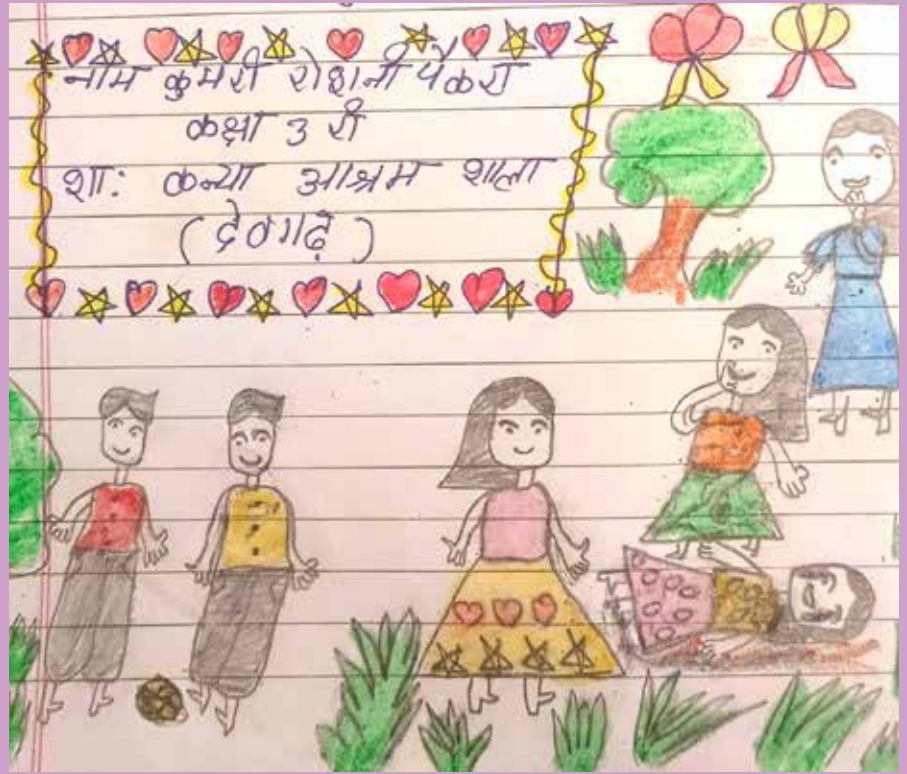 नाम कुमरी रोशनी पैकरा
कक्षा 3 री
शा: कन्या आश्रम शाला
(देवगढ़)